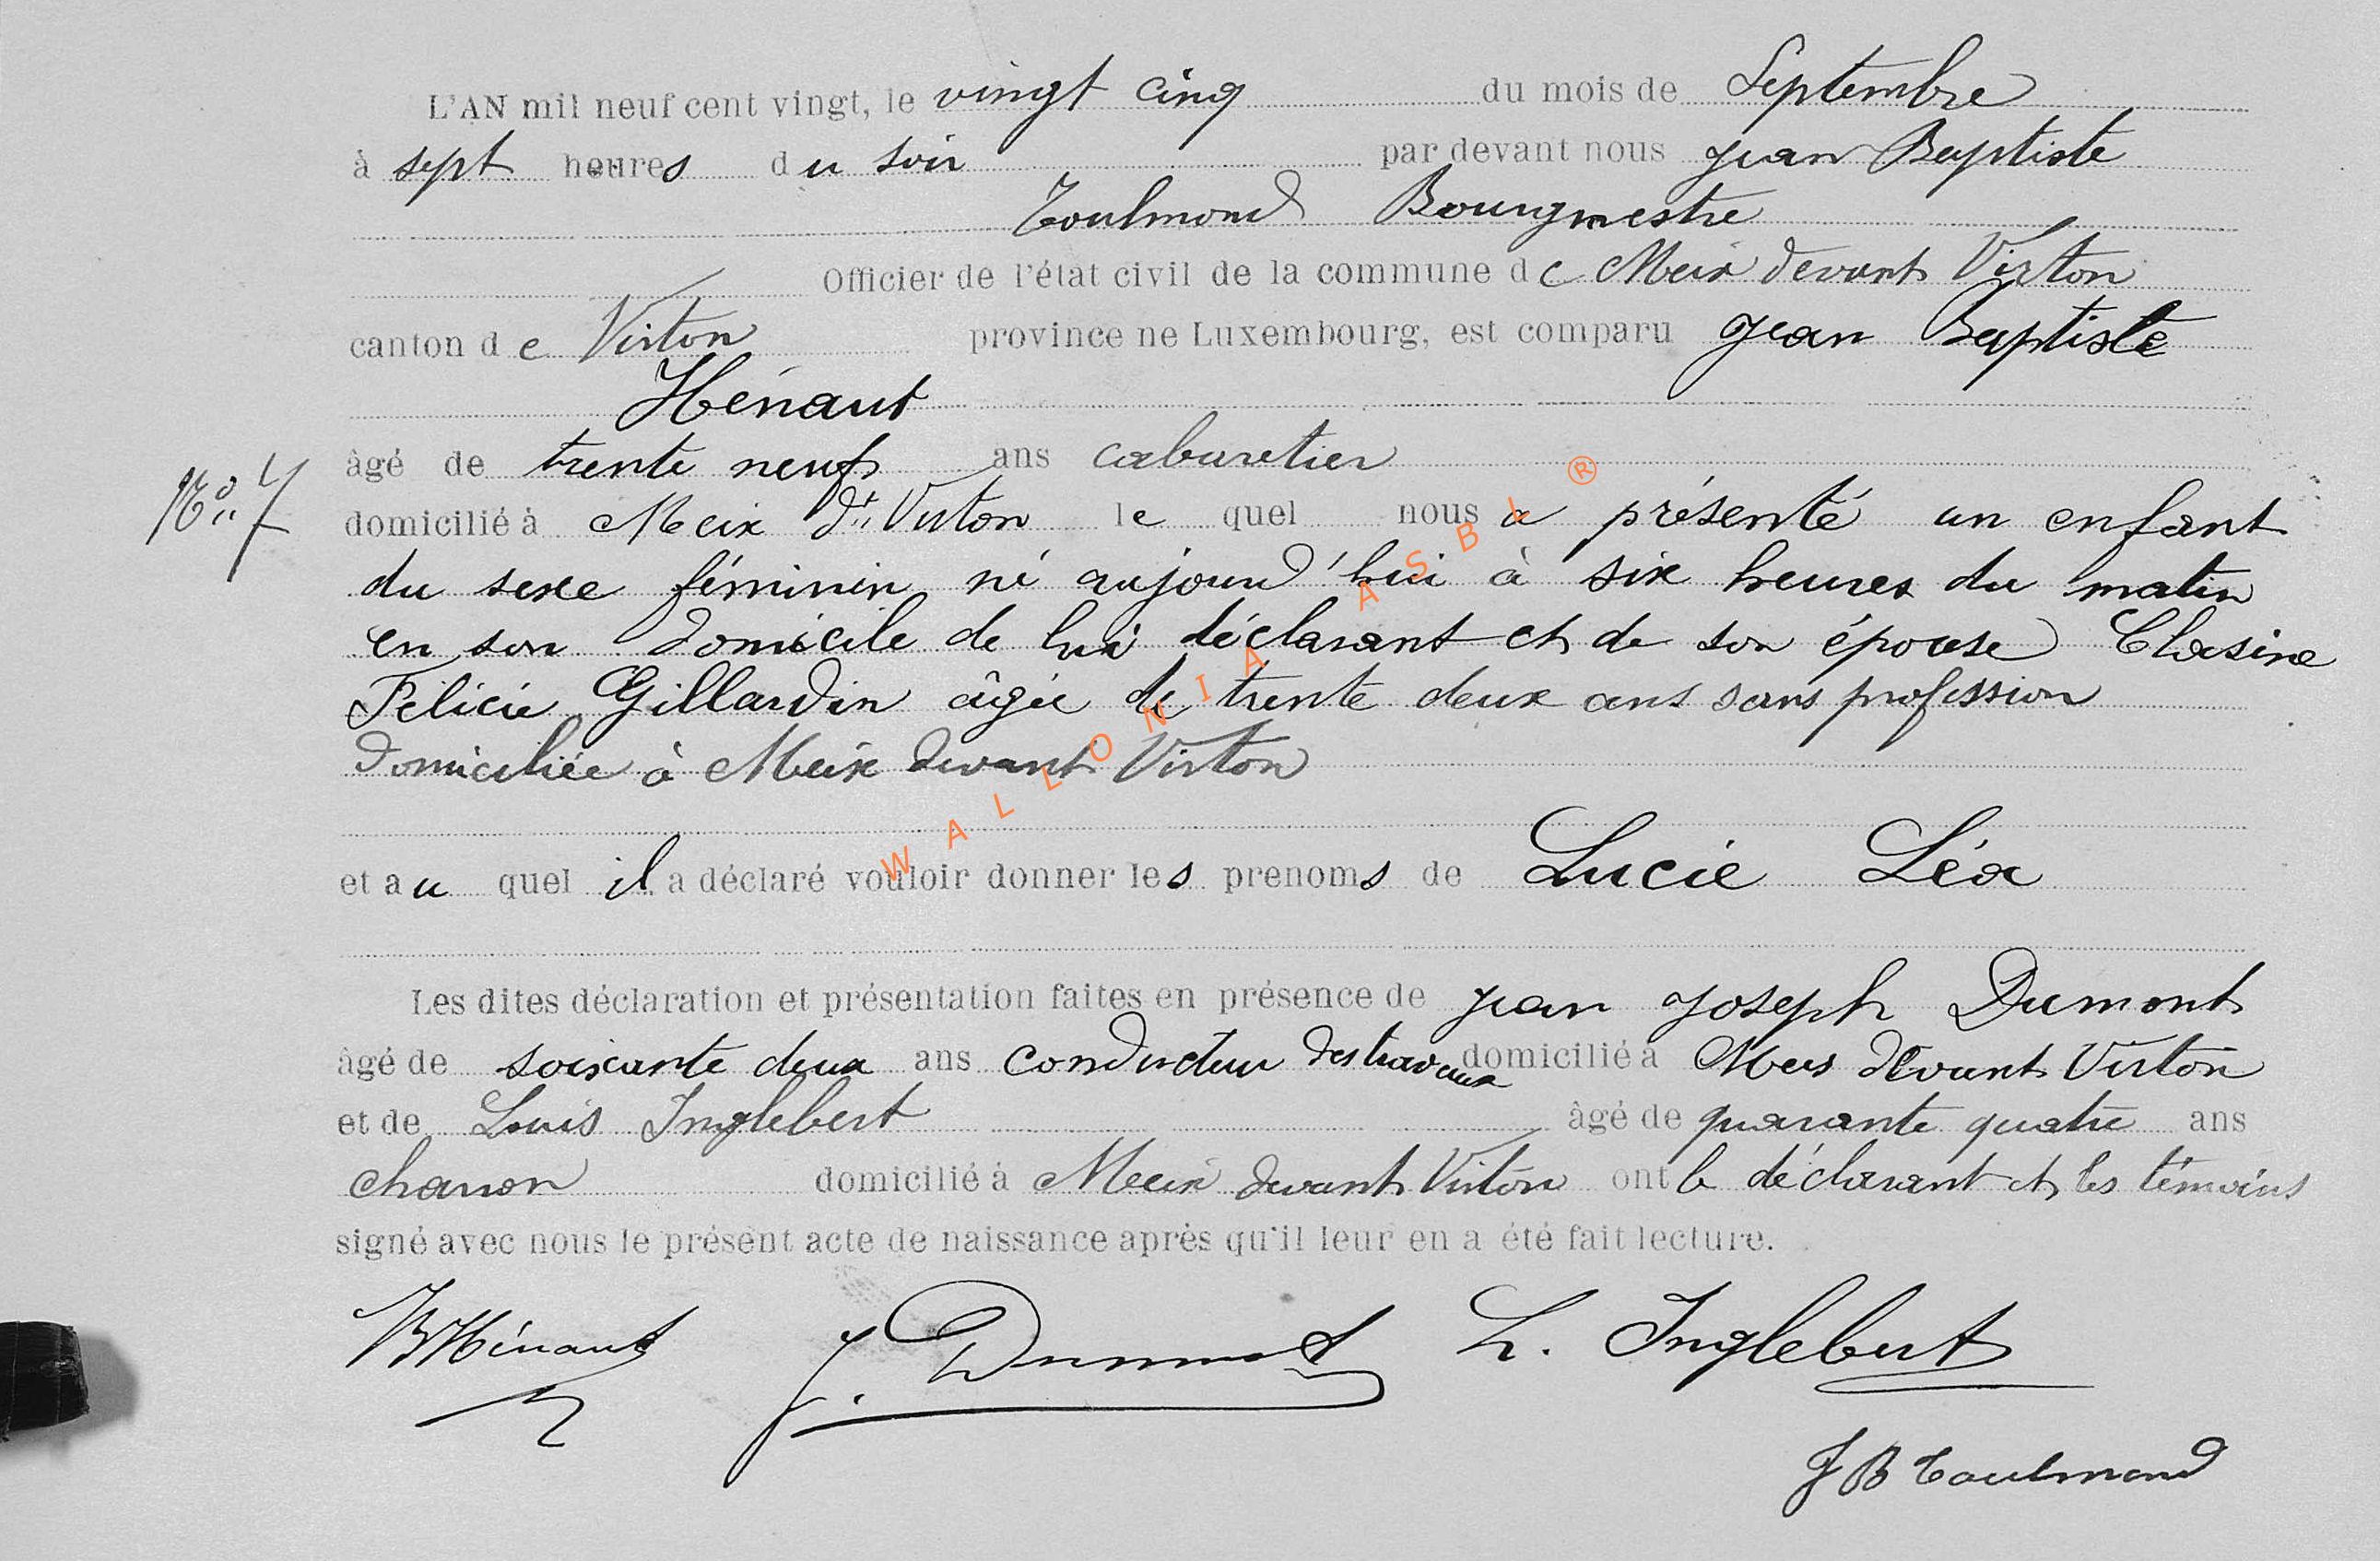 L'AN mil neuf cent vingt, le vingt cinq du mois de Septembre
à sept heures du soir par devant nous Jean Baptiste
Toulmond Bourgmestre
Officier de l'état civil de la commune de Meix devant Virton
canton de Virton province ne Luxembourg, est comparu Jean Baptiste
Hénaut
âgé de trente neuf ans cabaretier
N° 7
domicilié à Meix dt Virton lequel nous a présenté un enfant
du sexe féminin né aujourd'hui à six heures du matin
en son domicile de lui déclarant et de son épouse Clasine
Félicie Gillardin âgée de trente deux ans sans profession
domiciliée à Meix devant Virton
et au quel il a déclaré vouloir donner les prenoms de Lucie Léa
Les dites déclaration et présentation faites en présence de Jean Joseph Dumont
âgé de soixante deux ans conducteur des travaux domicilié à Meix devant Virton
et de Louis Inglebert âgé de quarante quatre ans
charron domicilié à Meix devant Virton ont le déclarant et les témoins
signé avec nous le présent acte de naissance après qu'il leur en a été fait lecture.
JBHénaut J. Dumont L. Inglebert
JB Toulmond
WALLONIA ASBL ®